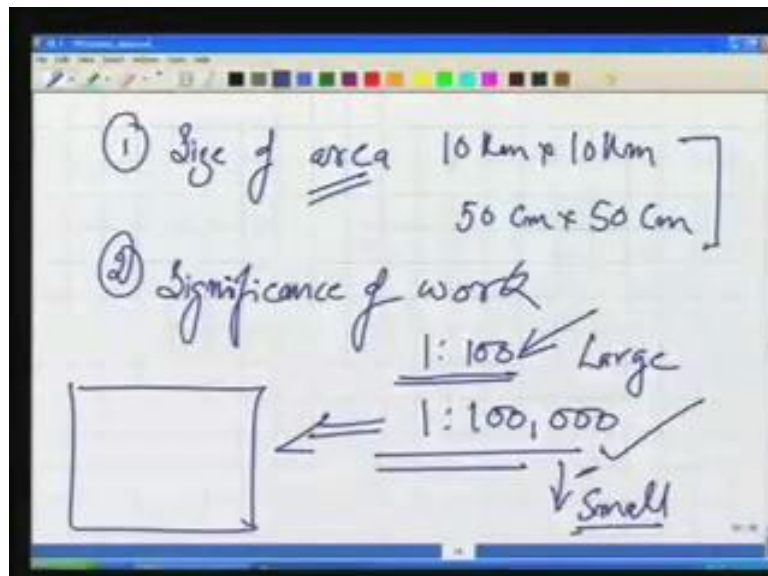 ① Size of area 10 Km × 10 Km
50 Cm × 50 Cm
② Significance of work
1:100 Large
1:100,000
Small